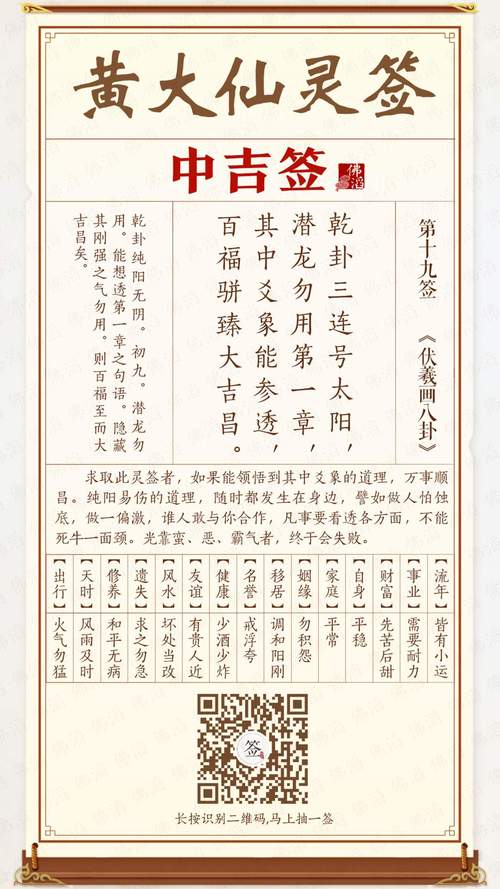 黄大仙灵签
中吉签
佛滔
第十九签 《伏羲画八卦》
乾卦三连号太阳,
潜龙勿用第一章,
其中爻象能参透,
百福骈臻大吉昌。
乾卦纯阳无阴。初九。潜龙勿
用。能想透第一章之句语。隐藏
其刚强之气勿用。则百福至而大
吉昌矣。
求取此灵签者,如果能领悟到其中爻象的道理,万事顺
昌。纯阳易伤的道理,随时都发生在身边,譬如做人怕蚀
底,做一偏激,谁人敢与你合作,凡事要看透各方面,不能
死牛一面颈。光靠蛮、恶、霸气者,终于会失败。
【流年】皆有小运
【事业】需要耐力
【财富】先苦后甜
【自身】平稳
【家庭】平常
【姻缘】勿积怨
【移居】调和阳刚
【名誉】戒浮夸
【健康】少酒少炸
【友谊】有贵人近
【风水】坏处当改
【遗失】求之勿急
【修养】和平无病
【天时】风雨及时
【出行】火气勿猛
签
长按识别二维码,马上抽一签